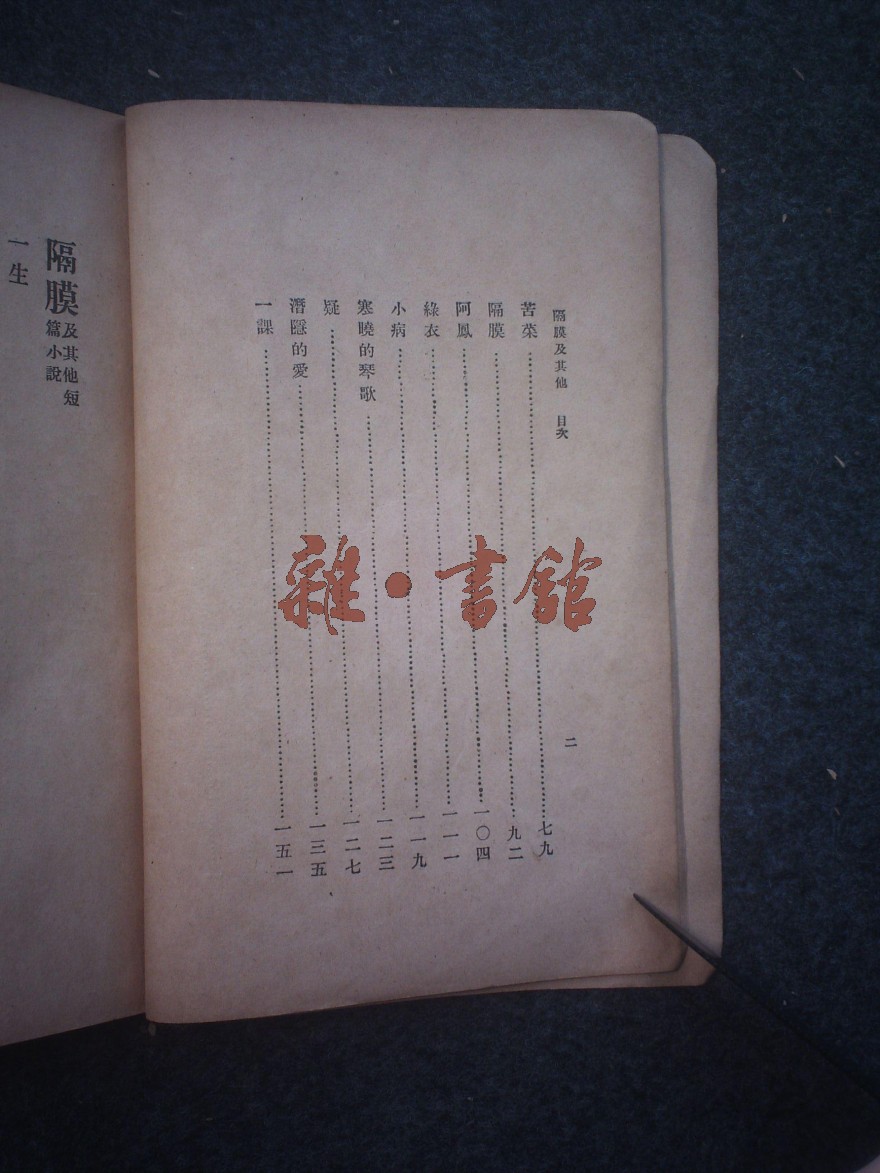 隔膜及其他　目次　二
苦菜…………七九
隔膜…………九二
阿鳳…………一〇四
綠衣…………一一一
小病…………一一九
寒曉的琴歌…………一二三
疑…………一二七
潛隱的愛…………一三五
一課…………一五一
隔膜及其他短篇小說
一生
雜·書館